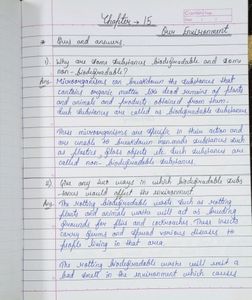 Chapter - 15
Our Environment
Ques and answers.
1). Why are some substances biodegradable and some
non - biodegradable?
Ans. Microorganisms can breakdown the substances that
contains organic matter like dead remains of plants
and animals and products obtained from them.
Such substances are called as biodegradable substances
This microorganisms are specific in their action and
are unable to breakdown man made substances such
as plastics, glass objects etc. Such substances are
called non - biodegradable substances.
2) Give any two ways in which biodegradable subs-
tances would affect the environment.
Ans. The rotting biodegradable waste such as rotting
plants and animals waste will act as breeding
grounds for flies and cockroaches. These insects
carry germs and spread various diseases to
people living in that area.
The rotting biodegradable wastes will emit a
bad smell in the environment which causes